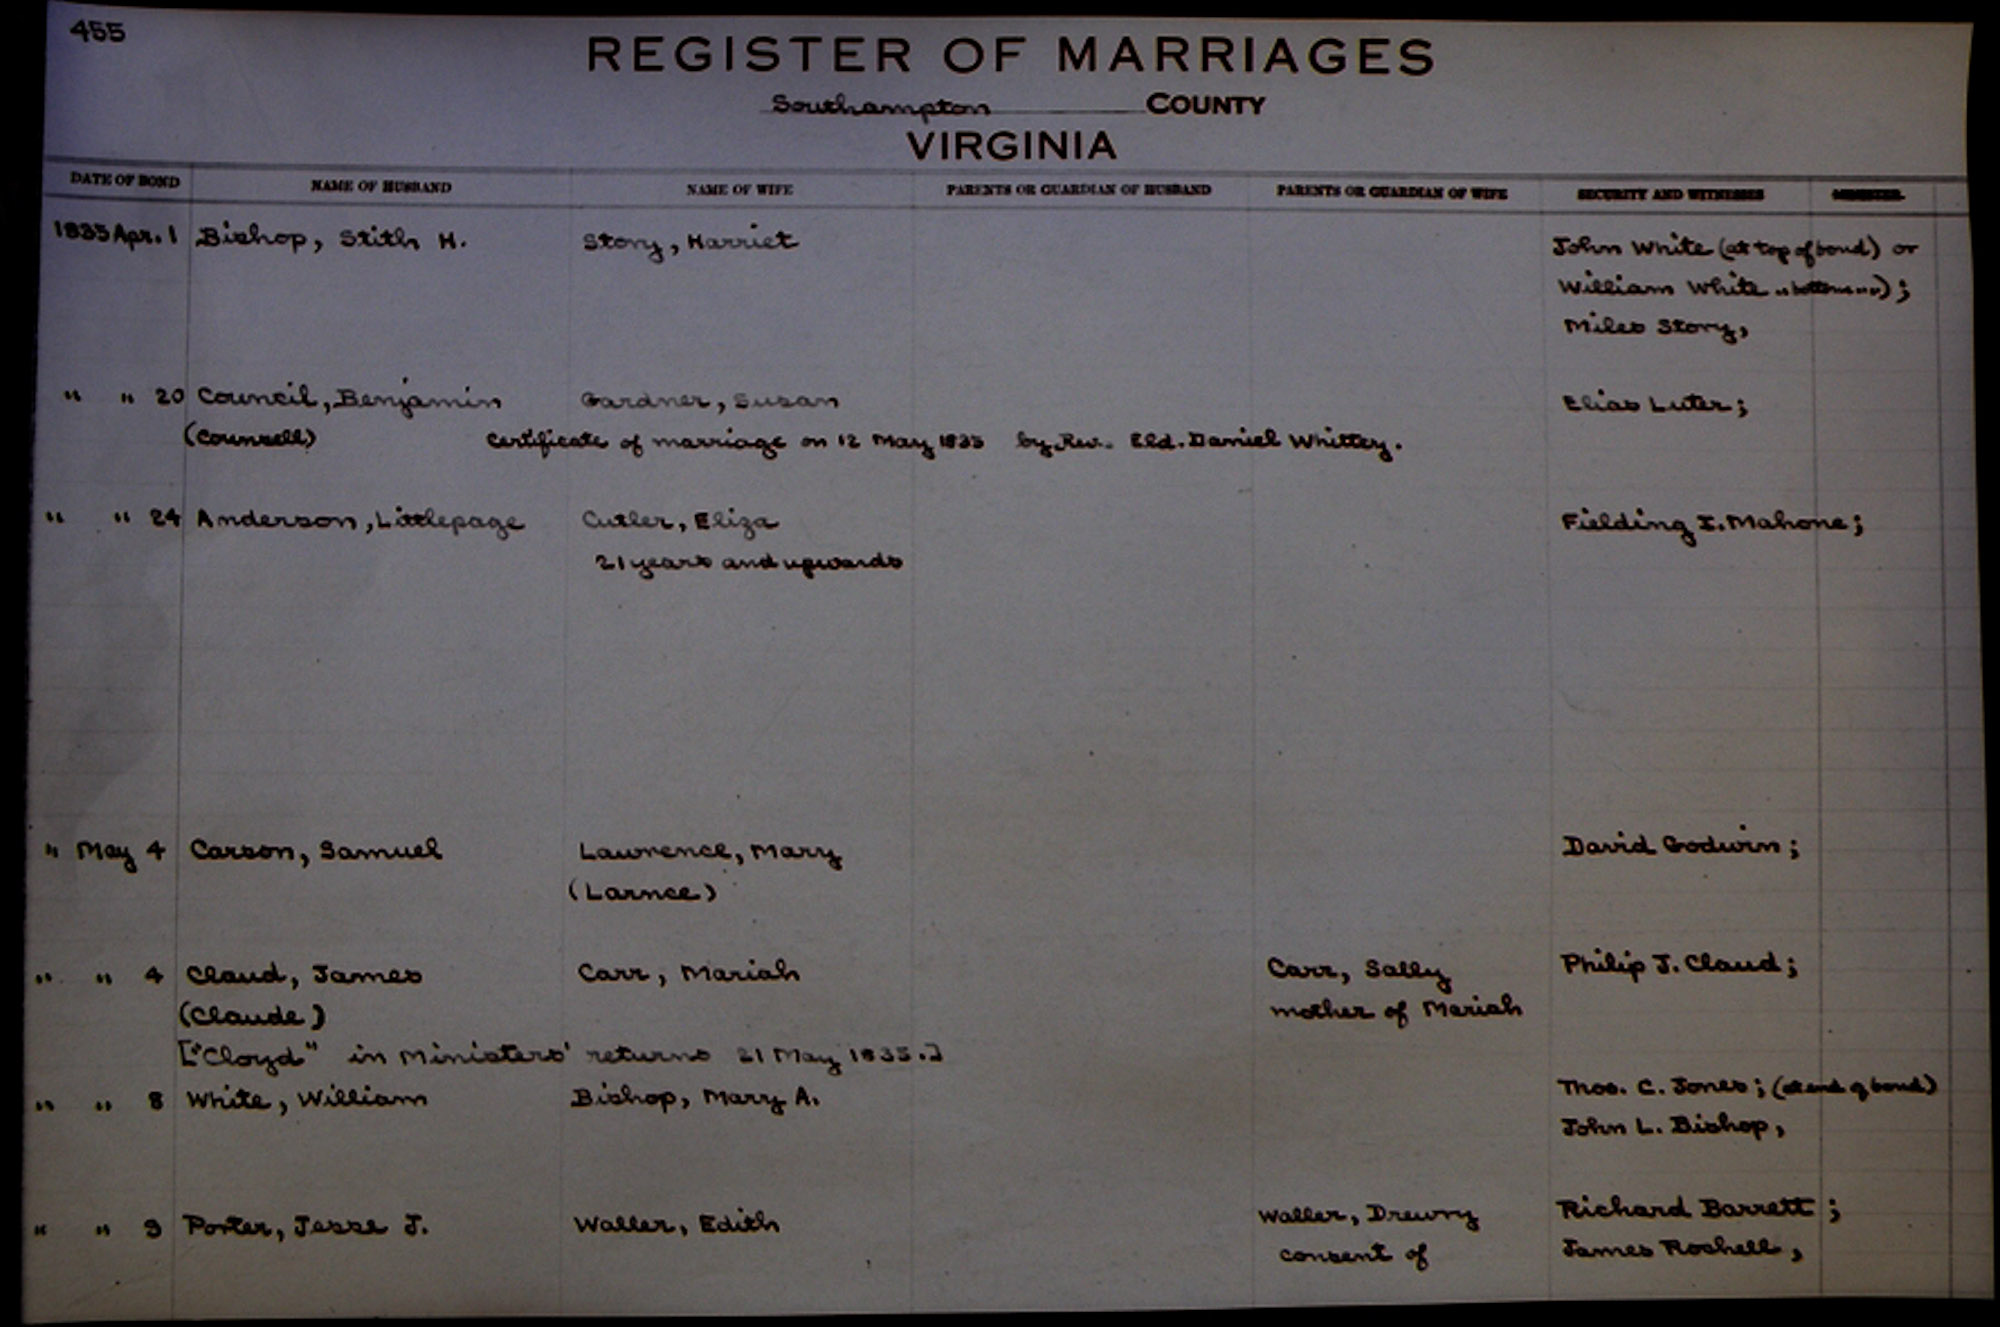 455
REGISTER OF MARRIAGES
Southampton COUNTY
VIRGINIA
DATE OF BOND NAME OF HUSBAND NAME OF WIFE PARENTS OR GUARDIAN OF HUSBAND PARENTS OR GUARDIAN OF WIFE SECURITY AND WITNESSES MINISTER
1835 Apr. 1 Bishop, Stith H. Story, Harriet John White (at top of bond) or
William White " bottom " ");
Miles Story,
" " 20 Council, Benjamin Gardner, Susan Elias Luter;
(Counsell) Certificate of marriage on 12 May 1835 by Rev. Eld. Daniel Whittey.
" " 24 Anderson, Littlepage Cutler, Eliza Fielding I. Mahone;
21 years and upwards
" May 4 Carson, Samuel Lawrence, Mary David Godwin;
(Larnce)
" " 4 Claud, James Carr, Mariah Carr, Sally Philip J. Claud;
(Claude) mother of Mariah
["Cloyd" in Ministers' returns 21 May 1835.]
" " 8 White, William Bishop, Mary A. Thos. C. Jones; (at end of bond)
John L. Bishop,
" " 9 Porter, Jesse J. Waller, Edith Waller, Drewry Richard Barrett;
consent of James Rochell,